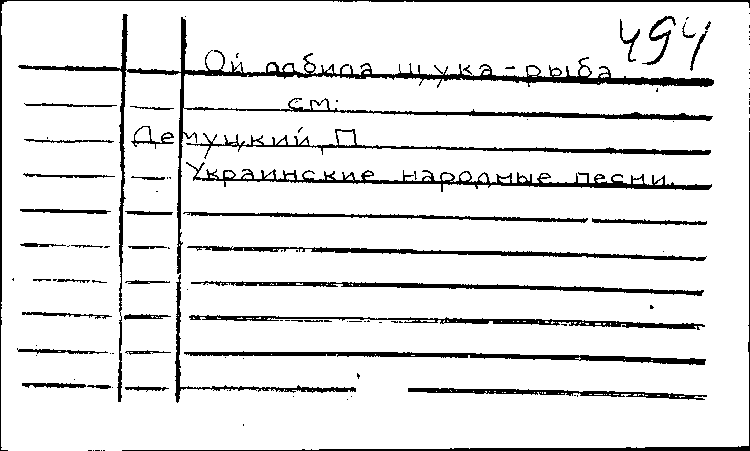 494
Ой лобила щука-рыба
см:
Демуцкий, П
Украинские народные песни.